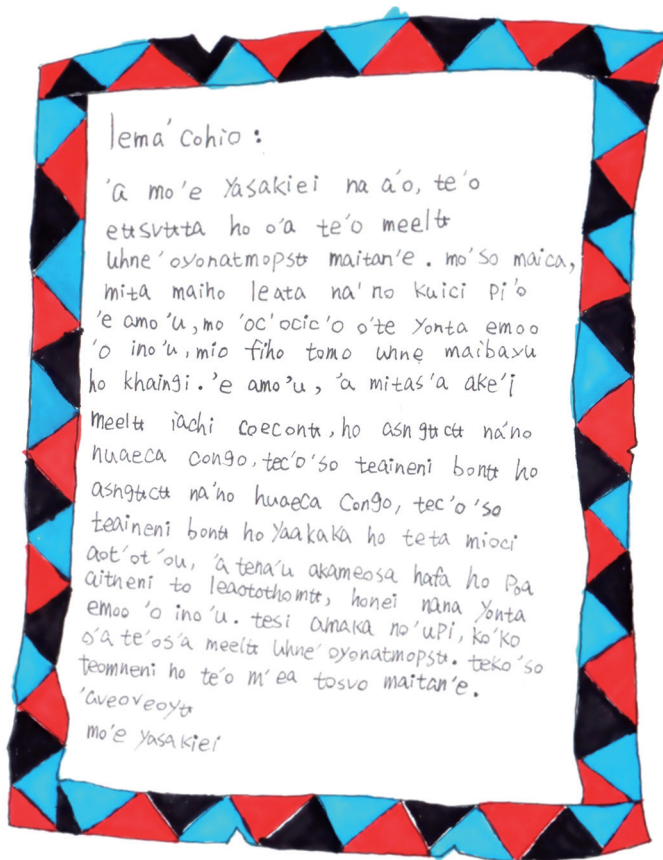 lema'cohio :
'a mo'e Yasakiei na a'o, te'o
eʉsvʉta ho o'a te'o meelʉ
uhne'oyonatmopsʉ maitan'e. mo'so maica,
mita maiho leata na'no kuici pi'o
'e amo'u, mo 'oc'ocic'o o'te yonta emoo
'o ino'u, mio fiho tomo uhne maibayu
ho khaingi. 'e amo'u, 'a mitas'a ake'i
meelʉ iachi coeconʉ, ho asngʉcʉ na'no
huaeca congo, tec'o'so teaineni bonʉ ho
asngʉcʉ na'no huaeca Congo, tec'o'so
teaineni bonʉ ho yaakaka ho teta mioci
aot'ot'ou, 'a tena'u akameosa hafa ho poa
aitneni to leaotothomʉ, honei nana yonta
emoo 'o ino'u. tesi amaka no'upi, ko'ko
o'a te'os'a meelʉ uhne'oyonatmopsʉ. teko'so
teomneni ho te'o m'ea tosvo maitan'e.
'aveoveoyʉ
mo'e yasakiei